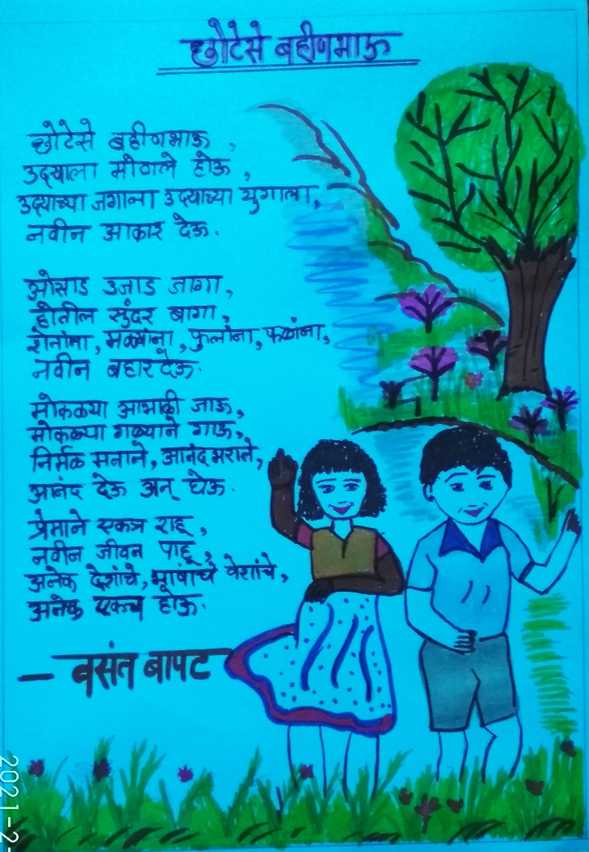 छोटेसे बहीणभाऊ
छोटेसे बहीणभाऊ,
उद्याला मोठाले होऊ,
उद्याच्या जगाला उद्याच्या युगाला,
नवीन आकार देऊ.
ओसाड उजाड जागा,
होतील सुंदर बागा,
शेतांना, मळ्यांना, फुलांना, फळांना,
नवीन बहार देऊ.
मोकळ्या आभाळी जाऊ,
मोकळ्या गळ्याने गाऊ,
निर्मळ मनाने, आनंदभराने,
आनंद देऊ अन् घेऊ.
प्रेमाने एकत्र राहू,
नवीन जीवन पाहू,
अनेक देशांचे, भाषांचे वेशांचे,
अनेक एकत्व होऊ.
– वसंत बापट
2021-2-